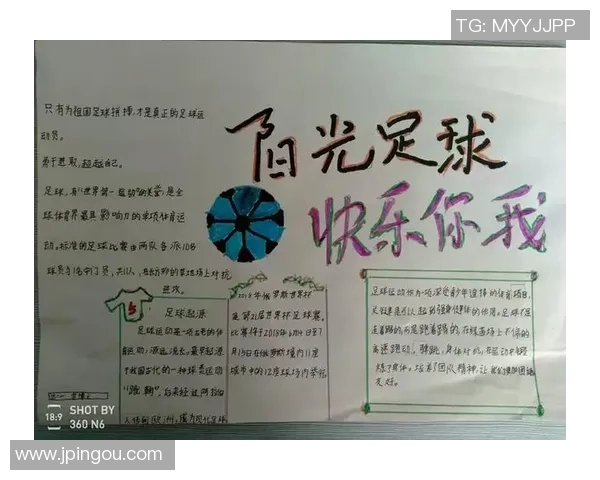 TG: MYYJJPP
只有为祖国足球拼搏,才是真正的足球运
动员。
勇于思取,超越自己。
足球,有"世界第一运动"的美誉,是全
球体育界最具影响力的单项体育运
动。标准的足球比赛由两队各派10名
球员与1名守门员,共11人,在长方形的草地球场上对抗、
进攻。
阳光足球
快乐你我
足球起源
足球运动是一项古老的体
育运动,源远流长。最早起源
于我国古代的一种球类运动
"蹴鞠",后来经过阿拉伯
人传到欧洲,发展成现代足球
2018年俄罗斯世界杯
是第21届世界杯足球赛。
比赛将于2018年6月14日至7
月15日在俄罗斯境内11座
城市中的12座球场内举行
足球运动作为一项深受青少年追捧的体育项目,
足球不是
走着踢的,而是跑着踢的,在球场上不停的
高速跑动、弹跳、身体对抗,
炼了身体。培养了团队精神,让我们更加团结
友好。
SHOT BY
18:9
360 N6
www.jpingou.com